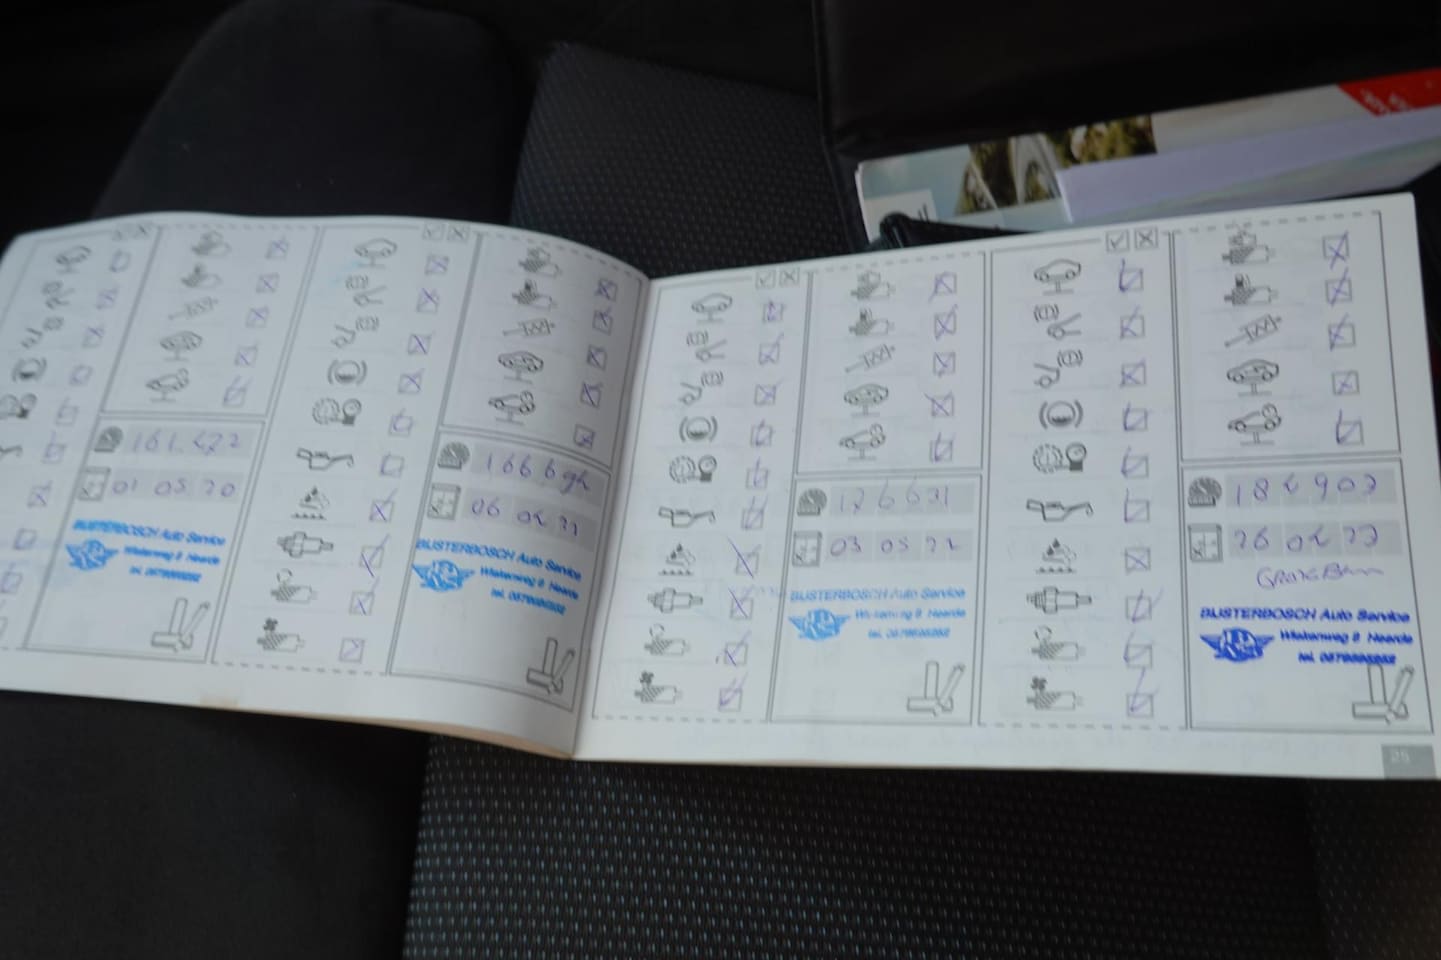 161.422
01 05 20
BIJSTERBOSCH Auto Service
Wiekenweg 9 Heerde
tel. 0578695252
06 04 21
BIJSTERBOSCH Auto Service
Wiekenweg 9 Heerde
tel. 0578695252
176631
03 05 22
BIJSTERBOSCH Auto Service
Wiekenweg 9 Heerde
tel. 0578695252
184903
26 04 23
BIJSTERBOSCH Auto Service
Wiekenweg 9 Heerde
tel. 0578695252
25